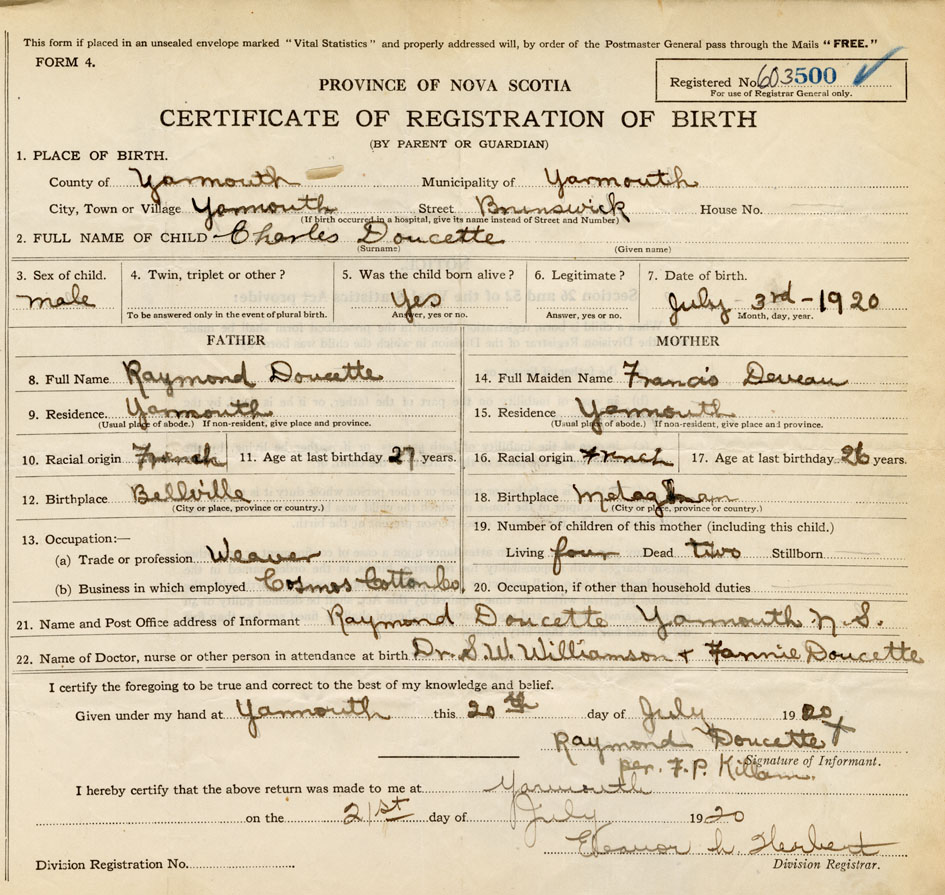 This form if placed in an unsealed envelope marked "Vital Statistics" and properly addressed will, by order of the Postmaster General pass through the Mails "FREE."
FORM 4.
Registered No. 603500
For use of Registrar General only.
PROVINCE OF NOVA SCOTIA
CERTIFICATE OF REGISTRATION OF BIRTH
(BY PARENT OR GUARDIAN)
1. PLACE OF BIRTH.
County of Yarmouth Municipality of Yarmouth
City, Town or Village Yarmouth Street Brunswick House No.
(If birth occurred in a hospital, give its name instead of Street and Number)
2. FULL NAME OF CHILD Charles Doucette
(Surname) (Given name)
3. Sex of child. 4. Twin, triplet or other? 5. Was the child born alive? 6. Legitimate? 7. Date of birth.
male Yes July 3rd - 1920
To be answered only in the event of plural birth. Answer, yes or no. Answer, yes or no. Month, day, year.
FATHER MOTHER
8. Full Name Raymond Doucette 14. Full Maiden Name Francis Deveau
9. Residence. Yarmouth 15. Residence Yarmouth
(Usual place of abode.) If non-resident, give place and province. (Usual place of abode.) If non-resident, give place and province.
10. Racial origin French 11. Age at last birthday 27 years. 16. Racial origin French 17. Age at last birthday 26 years.
12. Birthplace Bellville 18. Birthplace
(City or place, province or country.) (City or place, province or country.)
13. Occupation:— 19. Number of children of this mother (including this child.)
(a) Trade or profession Weaver Living four Dead two Stillborn
(b) Business in which employed Cosmos Cotton Co. 20. Occupation, if other than household duties
21. Name and Post Office address of Informant Raymond Doucette Yarmouth N.S.
22. Name of Doctor, nurse or other person in attendance at birth Dr. S.W. Williamson + Fannie Doucette
I certify the foregoing to be true and correct to the best of my knowledge and belief.
Given under my hand at Yarmouth this 20th day of July 1920
Raymond Doucette X
per. F.P. Killam.
Signature of Informant.
I hereby certify that the above return was made to me at Yarmouth
on the 21st day of July 1920
Eleanor L. Herbert
Division Registration No. Division Registrar.